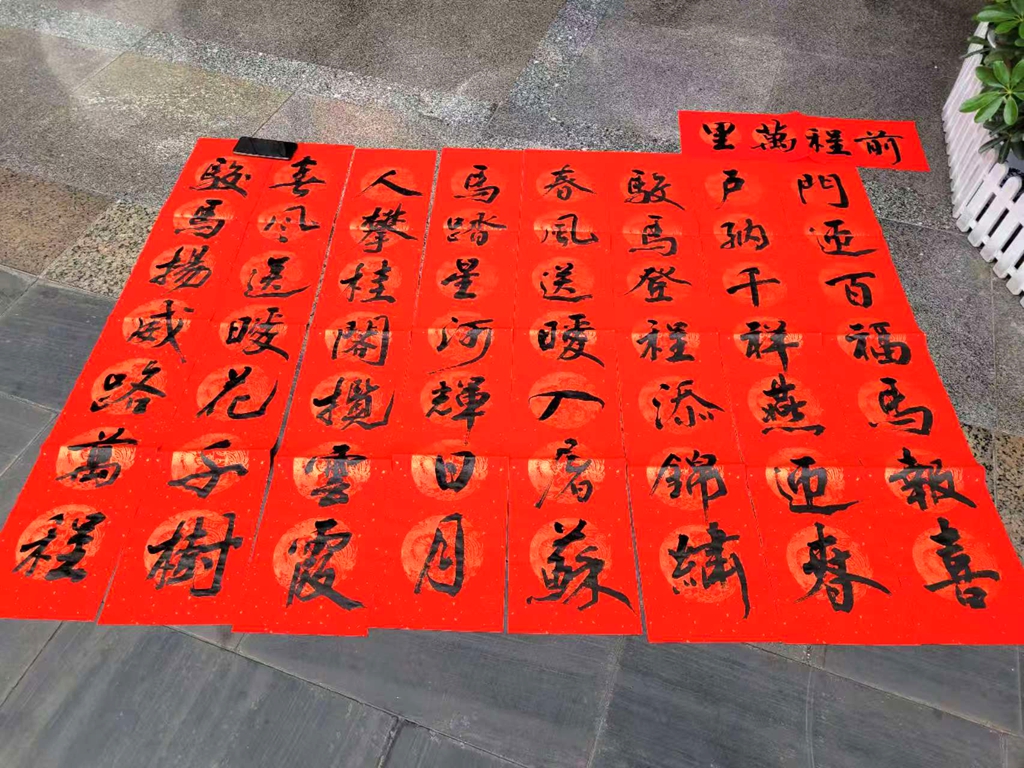 前程萬里
門迎百福馬報喜
戶納千祥燕迎春
駿馬登程添錦繡
春風送暖入屠蘇
馬踏星河輝日月
人攀桂閣攬雲霞
春風送暖花千樹
駿馬揚威路萬程